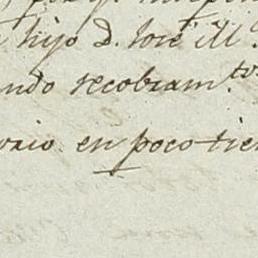 hijo D. José M.
ndo recobram.tos
orio en poco tie